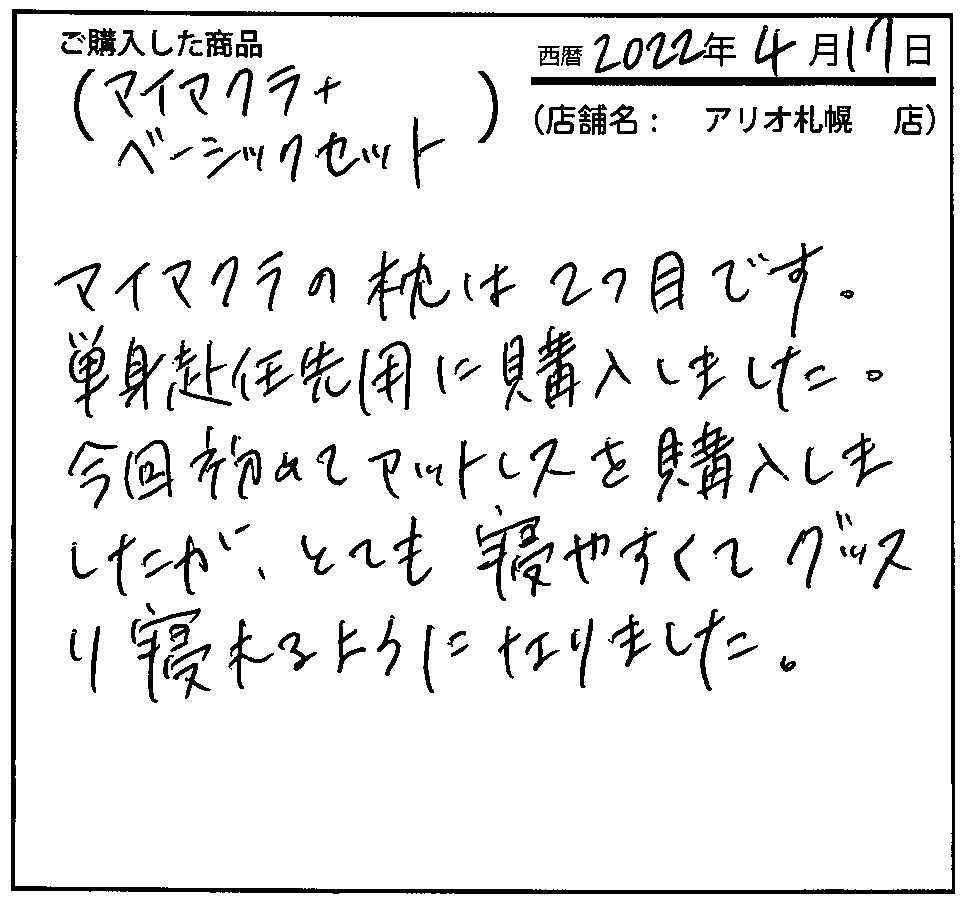 ご購入した商品
西暦 2022年 4月17日
(マイマクラ+
ベーシックセット)
(店舗名: アリオ札幌 店)
マイマクラの枕は2つ目です。
単身赴任先用に購入しました。
今回初めてマットレスを購入しま
したが、とても寝やすくてグッス
リ寝れるようになりました。